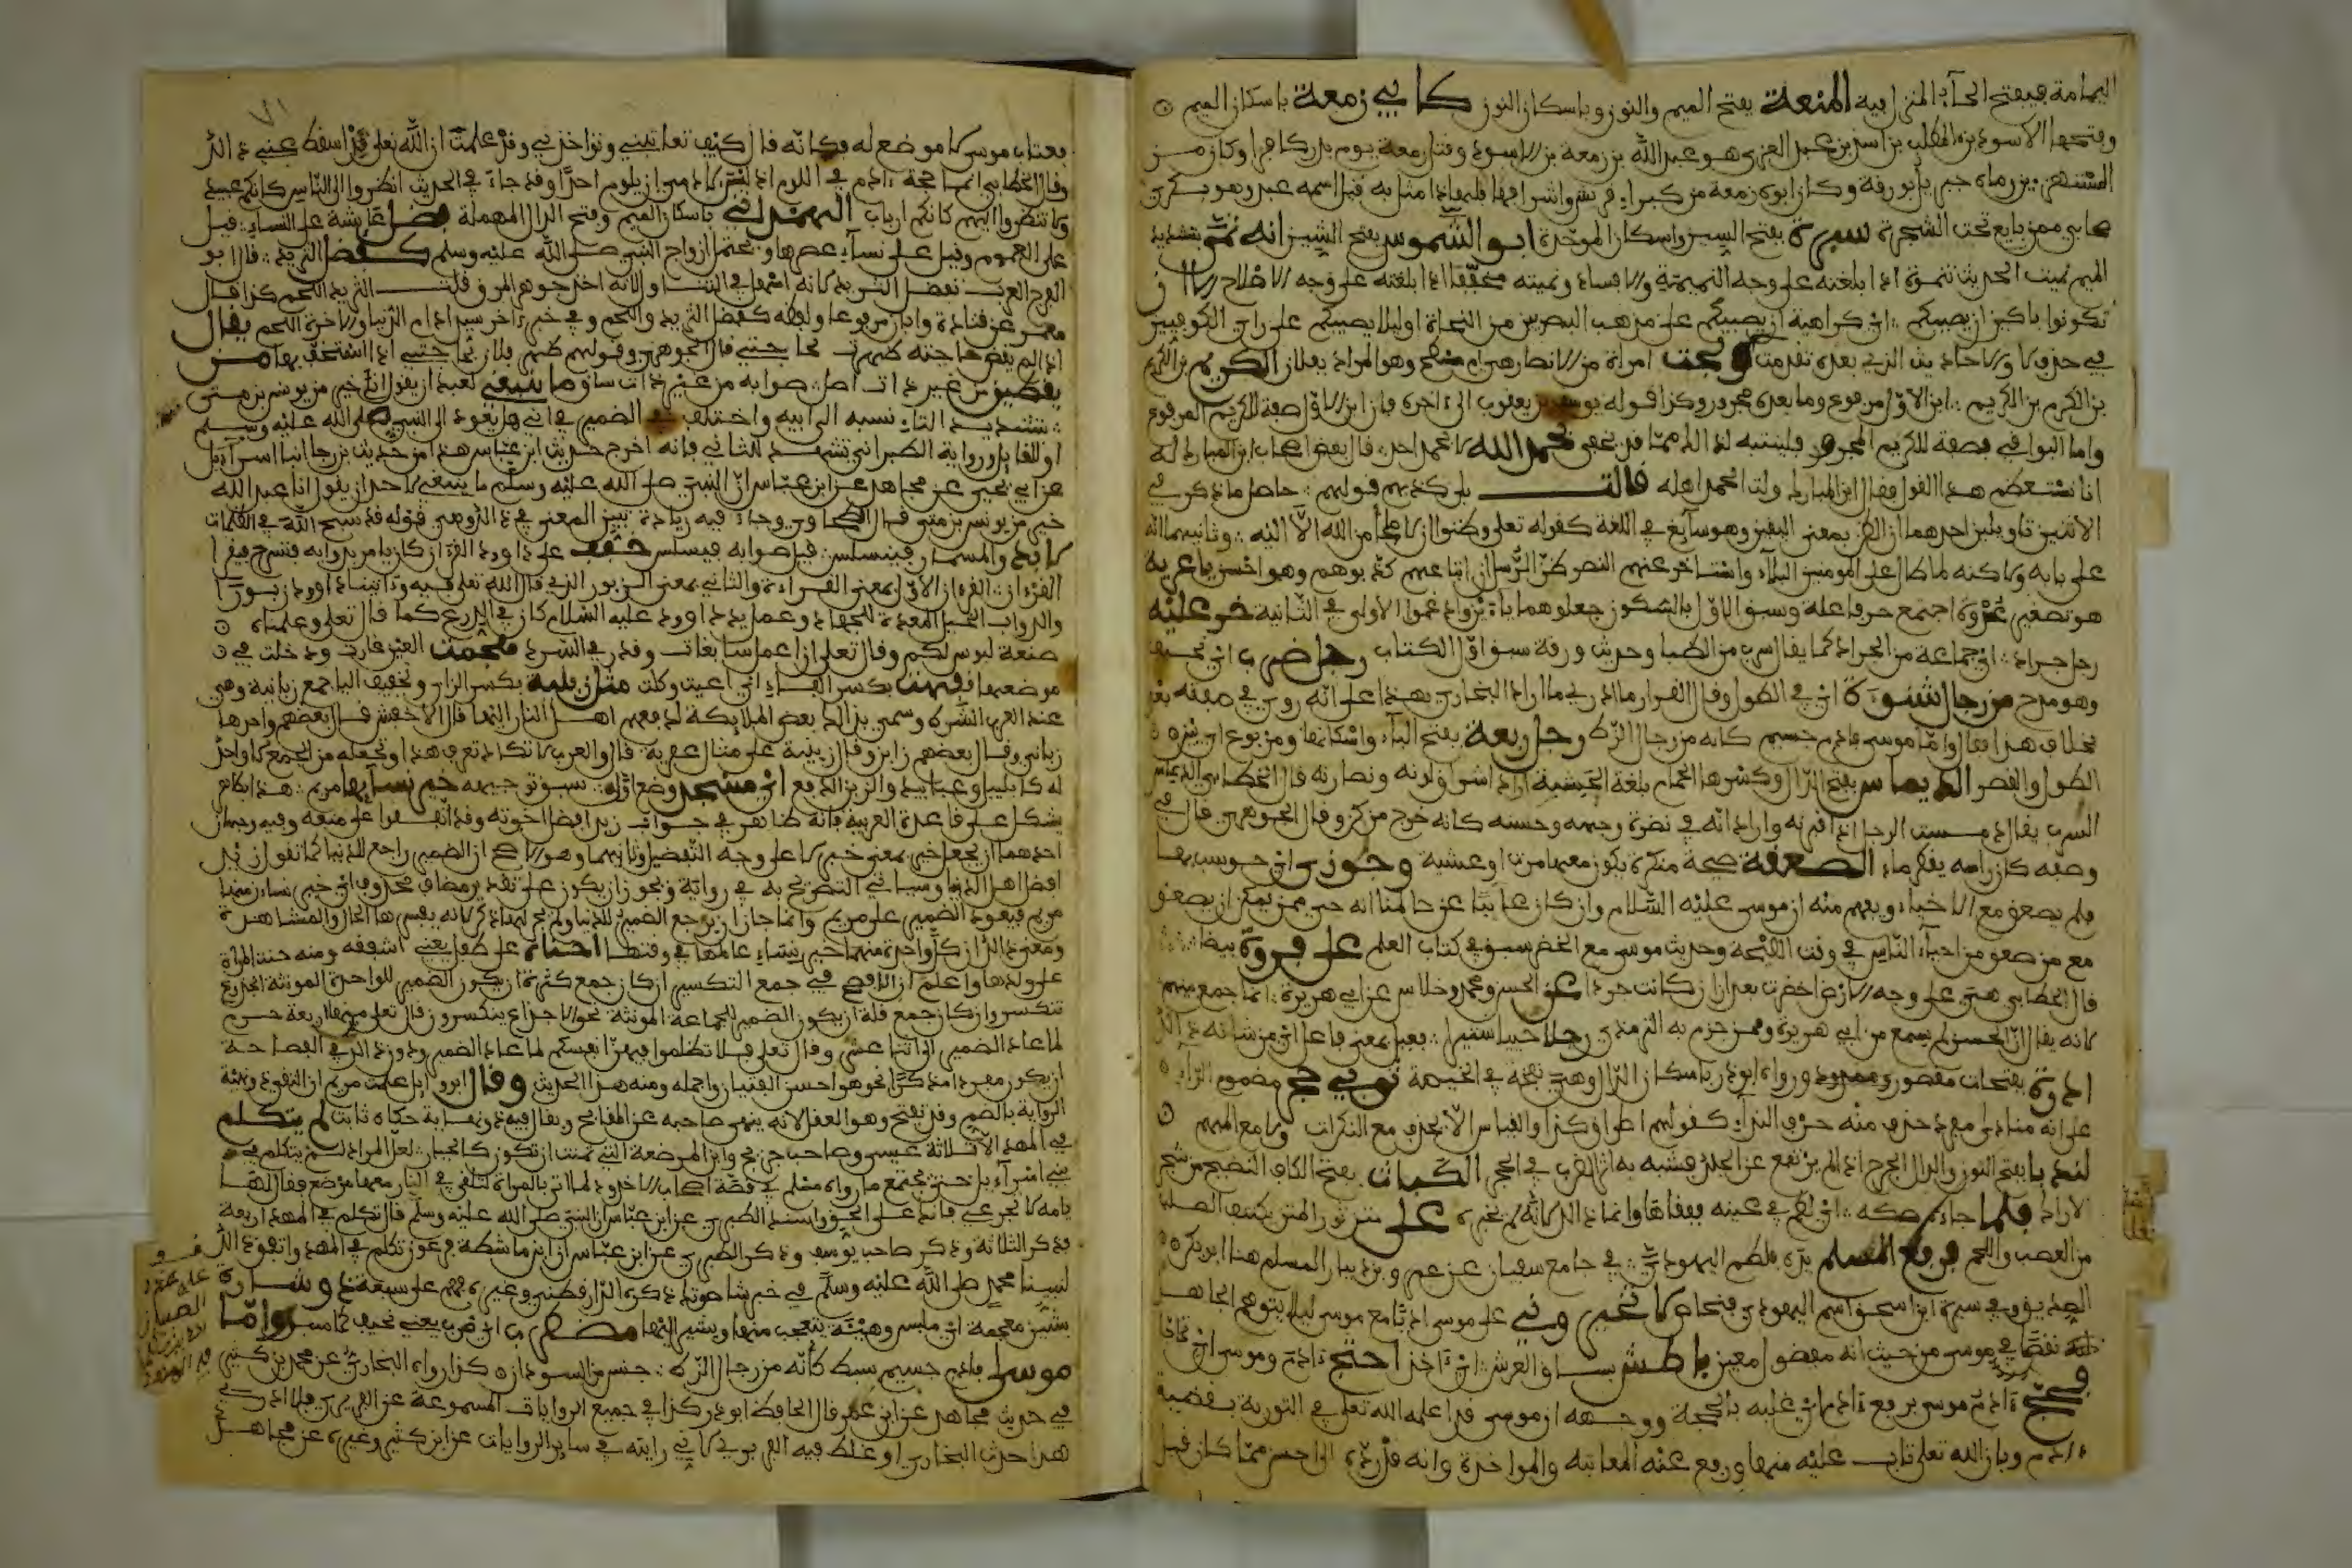 اليمامة فبفتح الحاء المنعة بفتح الميم والنون وباسكان النون كابي زمعة باسكان الميم
وفتحها الاسود بن المطلب بن اسد بن عبد العزى هو عبد الله بن زمعة بن الاسود وقتل زمعة يوم بدر كافرا وكان من
المستهزءين وكان ابوه زمعة من كبراء قريش واشرافها
ممن بايع تحت الشجرة سبرة بفتح السين واسكان الموحدة ابو الشموس بفتح الشين انه نمى بتشديد
الميم نميت الحديث تنمية اذا ابلغته على وجه النميمة والافساد ونميته مخففا اذا ابلغته على وجه الاصلاح
تكونوا باكين ان يصيبكم اي كراهية ان يصيبكم على مذهب البصريين من النحاة او ليلا يصيبكم على راي الكوفيين
في حذف لا والاحاديث التي بعده تقدمت ولجت امراة من الانصار هي ام مسطح وهو المراد بفلان الكريم بن الكريم
بن الكريم بن الكريم ابن الاول مرفوع وما بعده مجرور وكذا قوله يوسف بن يعقوب الى اخره فان ابن الاول صفة للكريم المرفوع
واما البواقي فصفة للكريم المجرور فليتنبه لذلك مما قد يخفى نحمد الله لا نحمد احدا قال بعض اصحاب ابن المبارك له
انا نستعظم هذا القول فقال ابن المبارك ولت الحمد اهله قالت بلى كذبهم قومهم حاصل ما ذكر في
الاثنين تاويلين احدهما ان الظن بمعنى اليقين وهو سايغ في اللغة كقوله تعلى وظنوا ان لا ملجأ من الله الا اليه وثانيهما انه
على بابه ولاكنه لما طال على المومنين البلاء واستاخر عنهم النصر ظن الرسل ان اتباعهم كذبوهم وهو احسن يا عرية
هو تصغير عروة اجتمع حرفا علة وسبق الاول بالسكون جعلوهما ياء ثم ادغموا الاولى في الثانية خر عليه
رجل جراد اي جماعة من الجراد كما يقال سرب من الظبا وحديث ورقة سبق اول الكتاب رجل ضرب اي نحيف
وهو مدح من رجال شنوءة اي في الطول وقال القزاز ما ادري ما اراد البخاري بهذا على انه روي في صفته بعد
بخلاف هذا فقال واما موسى فادم جسيم كانه من رجال الزط رجل ربعة بفتح الباء واسكانها ومربوع اي بين
الطول والقصر الديماس بفتح الدال وكسرها الحمام بلغة الحبشة اراد اشراق لونه ونضارته قال الخطابي الديماس
السرب يقال دمست الرجل اذا اقبرته واراد انه في نضرة وجهه وحسنه كانه خرج من كن وقال الجوهري قال في
وصفه كان راسه يقطر ماء الصعقة صيحة منكرة يكون معها موت او غشية وحوزي اي حوسب بها
فلم يصعق مع الاحياء ويفهم منه ان موسى عليه السلام وان كان غايبا عن عالمنا انه حي ممن يمكن ان يصعق
مع من صعق من احياء الناس في وقت النفخة وحديث موسى مع الخضر سبق في كتاب العلم على فروة بيضا
قال الخطابي هي على وجه الارض اخضرت بعد ان كانت جرداء عن الحسن ومحمد وخلاس عن ابي هريرة انما جمع بينهم
لانه يقال ان الحسن لم يسمع من ابي هريرة وممن جزم به الترمذي رجلا حييا ستيرا فعيل بمعنى فاعل اي من شانه ذلك
ادرة بفتحات مقصور وممدود ورواه ابو ذر باسكان الدال وهي نفخة في الخصية ثوبي حجر مضموم الراء
على انه منادى مفرد حذف منه حرف النداء كقولهم اطرق كرا والقياس الا يحذف مع النكرات ولا مع المبهم
لندبا بفتح النون والدال الجرح اذا لم يرتفع عن الجلد فشبه به اثر الضرب في الحجر الكباث بفتح الكاف النضيج من ثمر
الاراك فلما جاءه صكه اي لطمه في عينه ففقاها وانما ذلك لانه لم يخبره على متن ثور المتن مكتنف الصلب
من العصب واللحم فرفع المسلم يده فلطم اليهودي في جامع سفيان عن عمرو بن دينار المسلم هنا ابو بكر
الصديق وفي سيرة ابن اسحق اسم اليهودي فنحاص لا تخيروني على موسى ادبا مع موسى ليلا يتوهم الجاهل
نقصا في موسى من حيث انه مفضول معين باطش بساق العرش اي اخذ احتج ادم وموسى اي تحاجا
فحج ادم موسى برفع ادم اي غلبه بالحجة ووجهه ان موسى قد اعلمه الله تعلى في التورية بقضية
ادم وبان الله تعلى تاب عليه منها ورفع عنه المعاتبة والمواخذة وانه قد رده الى احسن مما كان قبل
فعتاب موسى لا موضع له فكانه قال كيف تعاتبني وتواخذني وقد علمت ان الله تعلى قد اسقط عني ذلك
وقال الخطابي انما حجة ادم في اللوم اذ ليس لادمي ان يلوم احدا وقد جاء في الحديث انظروا الى الناس كانكم عبيد
ولا تنظروا اليهم كانكم ارباب الهمداني باسكان الميم وفتح الدال المهملة فضل عايشة على النساء قيل
على العموم وقيل على نساء عصرها ويحتمل ازواج النبي صلى الله عليه وسلم كفضل الثريد قال ابو
الفرج العرب تفضل الثريد لانه اسهل في التناول ولانه اخذ جوهر المرق قلت الثريد اللحم كذا قال
معمر عن قتادة وابان مرفوعا ولفظه كفضل الثريد واللحم وفي خبر اخر سيد ادام الدنيا والاخرة اللحم يقال
اذا لم يقض حاجته ظهرت بحاجتي قال الجوهري وقولهم ظهر فلان بحاجتي اذا استخف بها من
يقطين من غير ذات اصل صوابه من غير ذات ساق ما ينبغي لعبد ان يقول اني خير من يونس بن متى
بتشديد التاء نسبه الى ابيه واختلف في الضمير في اني هل يعود الى النبي صلى الله عليه وسلم
او للقايل ورواية الطبراني تشهد للثاني فانه اخرج حديث ابن عباس هذا من حديث بن رجا انبا اسراءيل
عن ابي يحيى عن مجاهد عن ابن عباس ان النبي صلى الله عليه وسلم ما ينبغي لاحد ان يقول انا عبد الله
خير من يونس بن متى قال الطحاوي وجاء فيه زيادة تبين المعنى في ذلك وهي قوله قد سبح الله في الظلمات
لا تدق المسمار فيتسلسل قيل صوابه فيسلس خفف على داوود القرءان كان يامر بدوابه فتسرج فيقرا
القرءان القرءان الاول بمعنى القراءة والثاني بمعنى الزبور الذي قال الله تعلى فيه وءاتينا داوود زبورا
والدواب الخيل المعدة للجهاد وعمل يد داوود عليه السلام كان في الدرع كما قال تعلى وعلمناه
صنعة لبوس لكم وقال تعلى ان اعمل سابغات وقدر في السرد فهجمت العين غارت ودخلت في
موضعها نفهت بكسر الفاء اي اعيت وكلت مثال زبنية بكسر الزاي وتخفيف اليا جمع زبانية وهي
عند العرب الشرط وسمي بذلك بعض الملايكة لدفعهم اهل النار اليها قال الاخفش قال بعضهم واحدها
زباني وقال بعضهم زابن وقال زبنية على مثال عفرية قال والعرب لا تكاد تعرف هذا وتجعله من الجمع الذي لا واحد
له كابابيل وعبابيد والزبن الدفع اي مسجد وضع اول سبق توجيهه خير نسايها مريم هذا الكلام
يشكل على قاعدة العربية فانه ظاهر في جواب زيد افضل اخوته وقد اتفقوا على منعه وفيه وجهان
احدهما ان يجعل خير بمعنى خيرة لا على وجه التفضيل وثانيهما وهو الاصح ان الضمير راجع للدنيا كما تقول زيد
افضل اهل الدنيا وسياتي التصريح به في رواية ويجوز ان يكون على تقدير مضاف محذوف اي خير نساء زمنها
مريم فيعود الضمير على مريم وانما جاز ان يرجع الضمير للدنيا ولم يجر لها ذكر لانه يفسرها الحال والمشاهدة
ومعنى ذلك ان كل واحدة منهما خير نساء عالمها في وقتها احناه على طفل يعني اشفقه ومنه حنت المراة
على ولدها واعلم ان الافصح في جمع التكسير ان كان جمع كثرة ان يكون الضمير للواحدة المونثة الجذوع
تنكسر وان كان جمع قلة ان يكون الضمير لجماعة المونثة نحو الاجذاع ينكسرن وقال تعلى منها اربعة حرم
لما عاد الضمير لاثنا عشر وقال تعلى فلا تظلموا فيهن انفسكم لما عاد الضمير ودون ذلك في الفصاحة
ان يكون مفردا مذكرا نحو هو احسن الفتيان واجمله ومنه هذا الحديث وقال ابو وايل علمت مريم ان التقي ذو نهية
الرواية بالضم وقد تفتح وهو العقل لانه ينهى صاحبه عن القبايح ويقال فيه ذو نهاية حكاه ثابت لم يتكلم
في المهد الا ثلاثة عيسى وصاحب جريج وابن المرضعة التي تمنت ان تكون كالجبار لعل المراد لم يتكلم في
بني اسراءيل حتى يجتمع ما رواه مسلم في قصة اصحاب الاخدود لما اتي بالمراة لتلقى في النار معها مرضع فقال لها
يامه لا تجزعي فانك على الحق واسند الطبري عن ابن عباس ان النبي صلى الله عليه وسلم قال تكلم في المهد اربعة
فذكر الثلاثة وذكر صاحب يوسف وذكر الطبري عن ابن عباس ان ابن ماشطة فرعون تكلم في المهد واتفق ذلك
لنبينا محمد صلى الله عليه وسلم في خبر شاصونة ذكره الدارقطني وغيره فهم على سبعة ذو شارة
بشين معجمة اي ملبس وهيئة يتعجب منها ويشير اليها مضطرب اي ضرب يعني نحيف كما سبق واما
موسى فادم جسيم سبط كأنه من رجال الزط جنس من السودان كذا رواه البخاري عن محمد بن كثير
في حديث مجاهد عن ابن عمر قال الحافظ ابو ذر كذا في جميع الروايات المسموعة عن الفربري فلا ادري
هكذا حدث البخاري او غلط فيه الفربري لاني رايته في ساير الروايات عن ابن كثير وغيره عن مجاهد